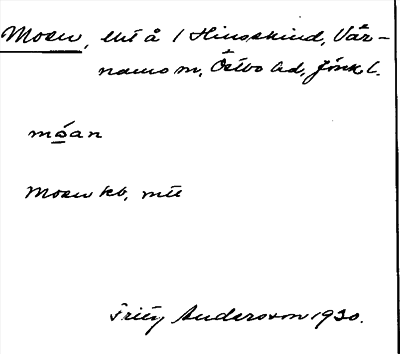 Moen, lht å 1 Hinsekind, Vär-
namo sn, Östbo hd, Jönk. l.
móan
Moen kb, mtl
Fritz Andersson 1930.